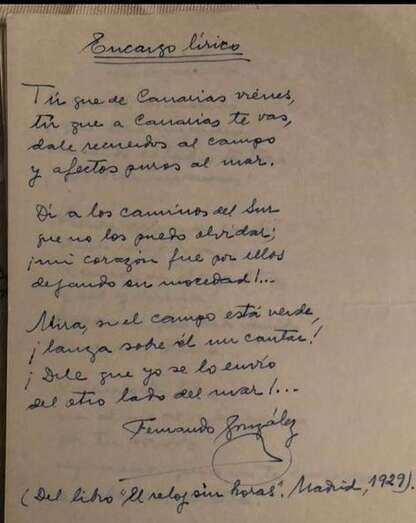 Encargo lírico
Tú que de Canarias viénes,
tú que a Canarias te vas,
dale recuerdos al campo
y afectos puros al mar.
Di a los caminos del Sur
que no los puedo olvidar;
¡mi corazón fue por ellos
dejando su mocedad!...
Mira, si el campo está verde,
¡lanza sobre él un cantar!
¡Dile que yo se lo envío
del otro lado del mar!...
Fernando González
(Del libro "El reloj sin horas". Madrid, 1929).